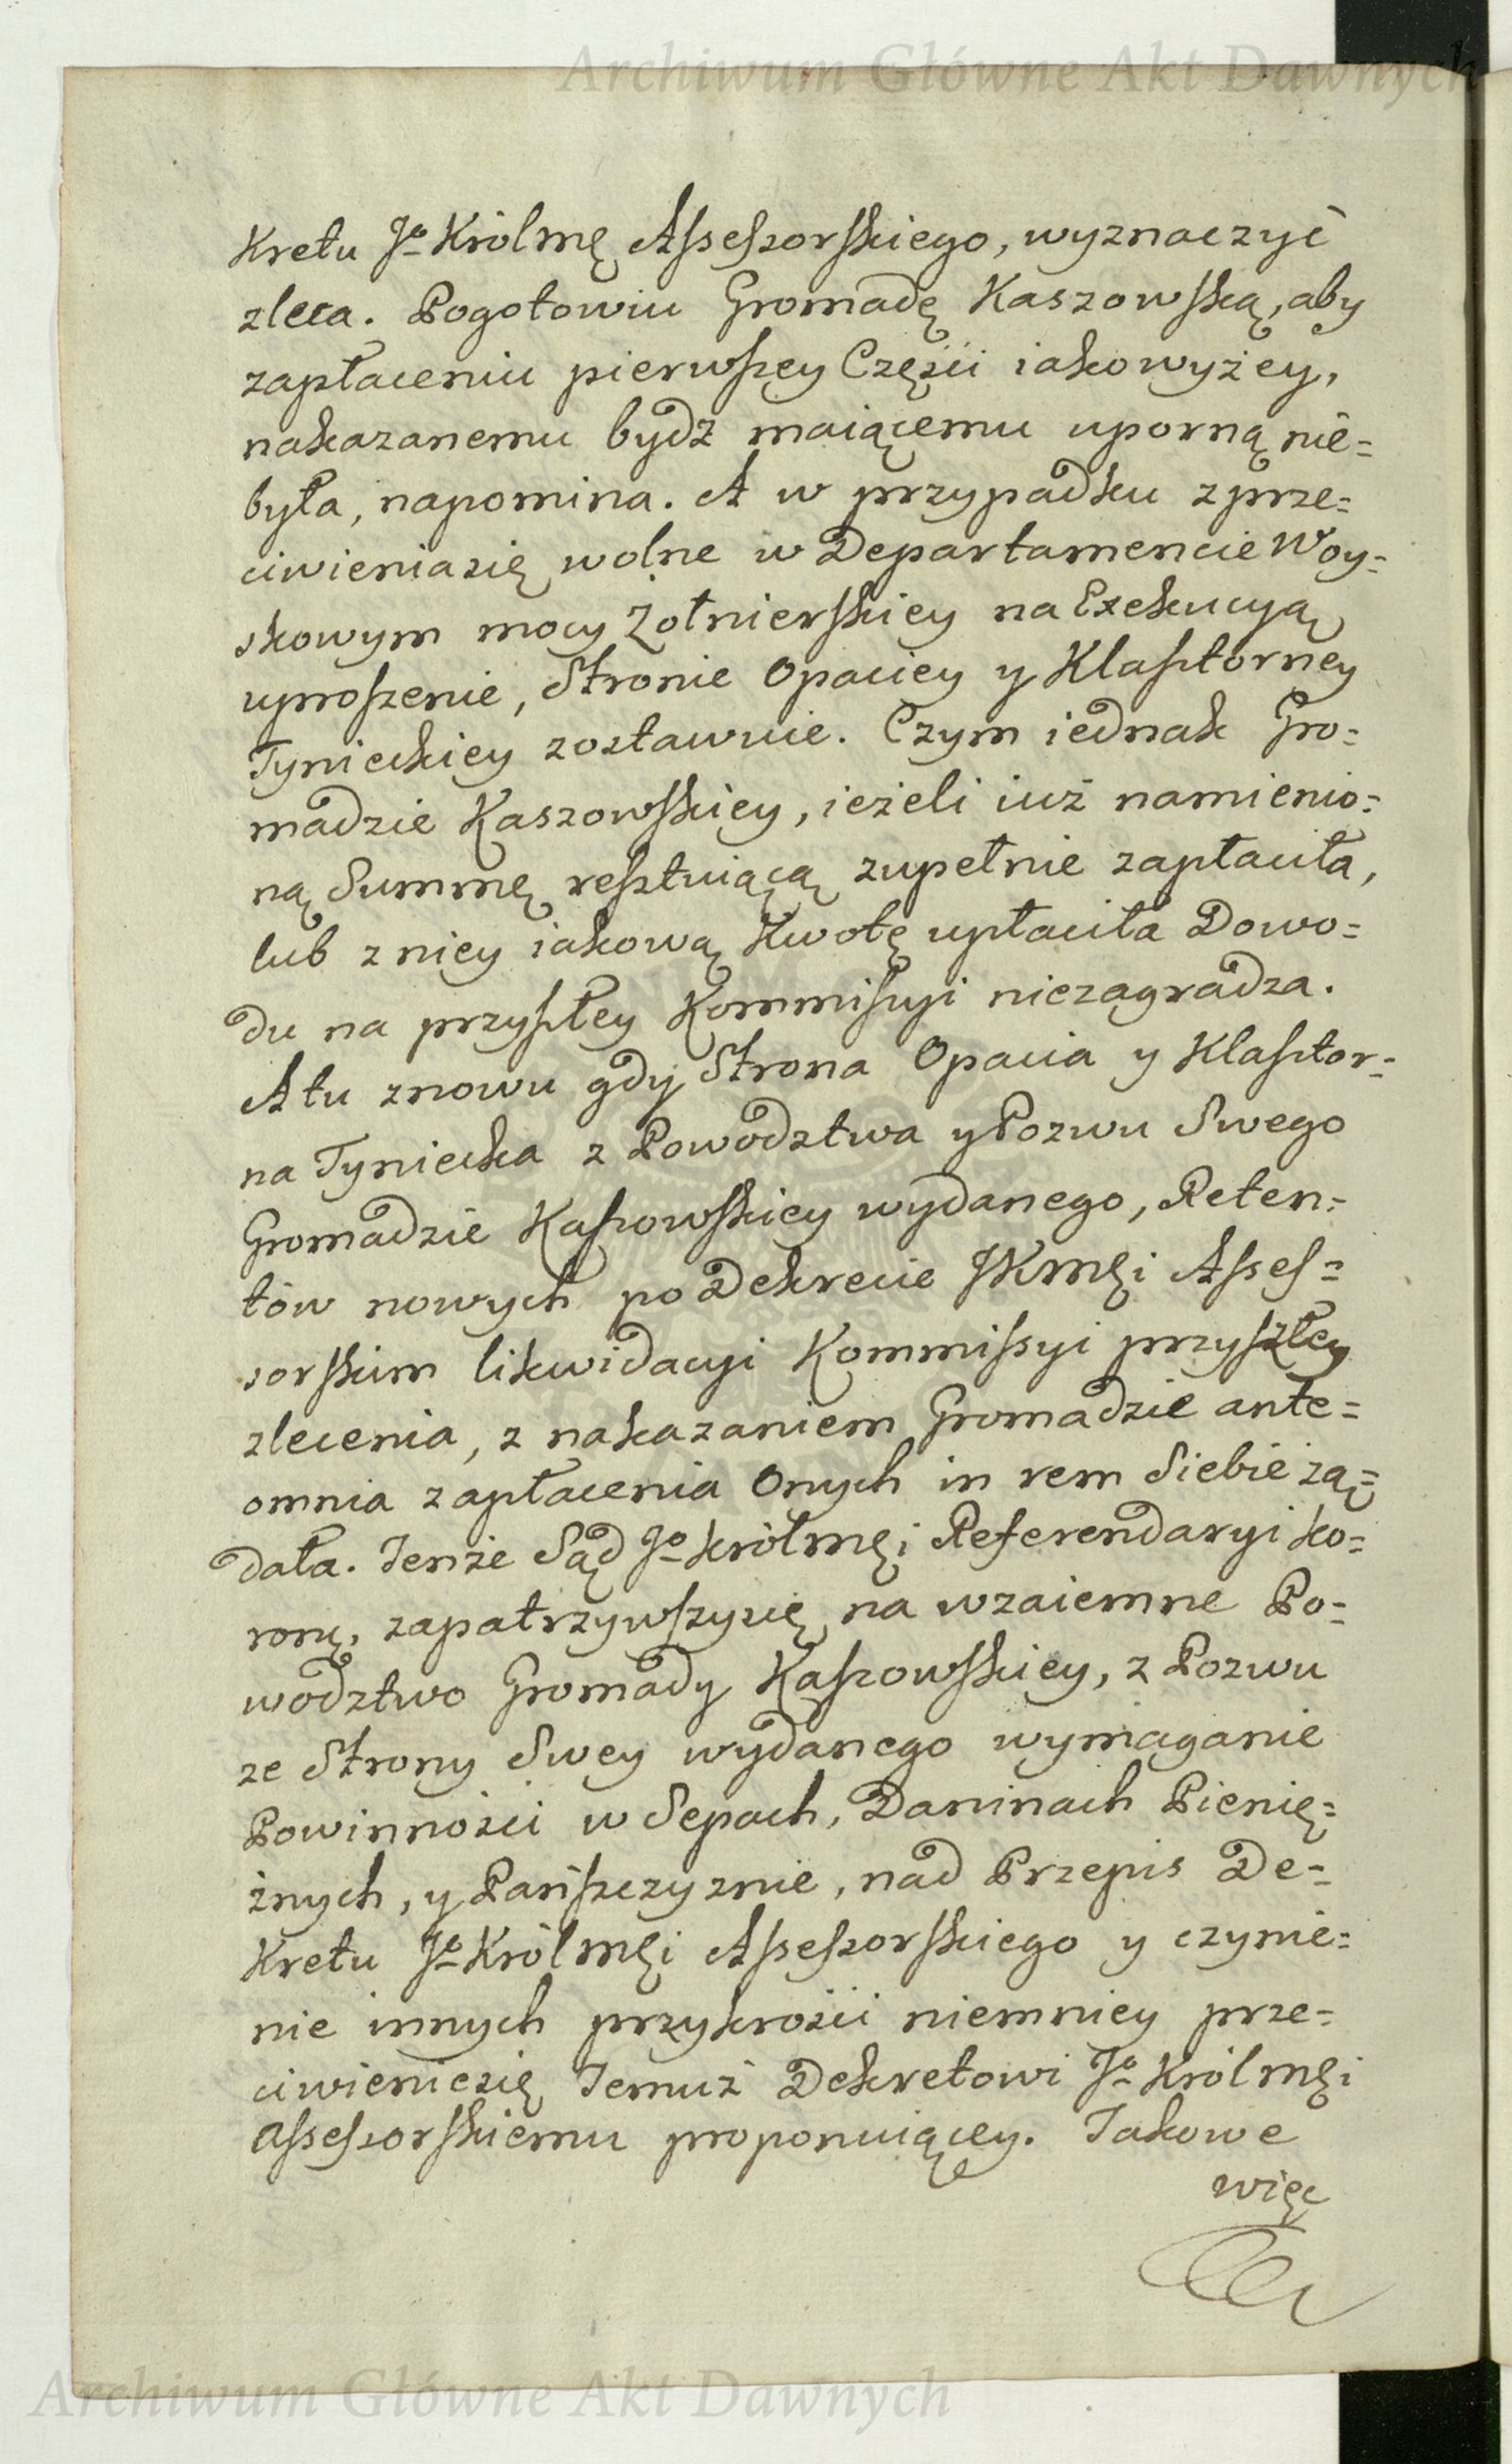 Archiwum Główne Akt Dawnych
kretu Jº Królmę Assessorskiego, wyznaczyć
zleca. Pogotowiu Gromadę Kaszowską, aby
zapłaceniu pierwszey Części iako wyżey,
nakazanemu bydź maiącemu uporną nie=
była, napomina. A w przypadku zprze=
ciwienia się wolne w Departamencie Woy=
skowym mocy Żołnierskiey na Exekucyą
uproszenie, Stronie Opaciey y Klasztorney
Tynieckiey zostawuie. Czym iednak Gro=
madzie Kaszowskiey, ieżeli iuż namienio=
ną Summę resztuiącą zupełnie zapłaciła,
lub z niey iakową Kwotę upłaciła Dowo=
du na przyszłey Kommissyi niezagradza.
A tu znowu gdy Strona Opacia y Klasztor=
na Tyniecka z Powodztwa y Pozwu Swego
Gromadzie Kaszowskiey wydanego, Reten=
tów nowych po Dekrecie JKmęi Asses=
sorskim likwidacyi Kommissyi przyszłey
zlecenia, z nakazaniem Gromadzie ante=
omnia zapłacenia Onych in rem Siebie żą=
dała. Tenże Sąd Jº Królmęi Referendaryi Ko=
ronę, zapatrzywszy się na wzaiemne Po=
wodztwo Gromady Kaszowskiey, z Pozwu
ze Strony Swey wydanego wymaganie
Powinności w Sepach, Daninach Pienię=
żnych, y Pańszczyznie, nad Przepis De=
kretu Jº Królmęi Assessorskiego y czynie=
nie innych przykrości niemniey prze=
ciwienie się Temuż Dekretowi Jº Królmęi
Assessorskiemu proponuiącey. Takowe
więc
Archiwum Główne Akt Dawnych